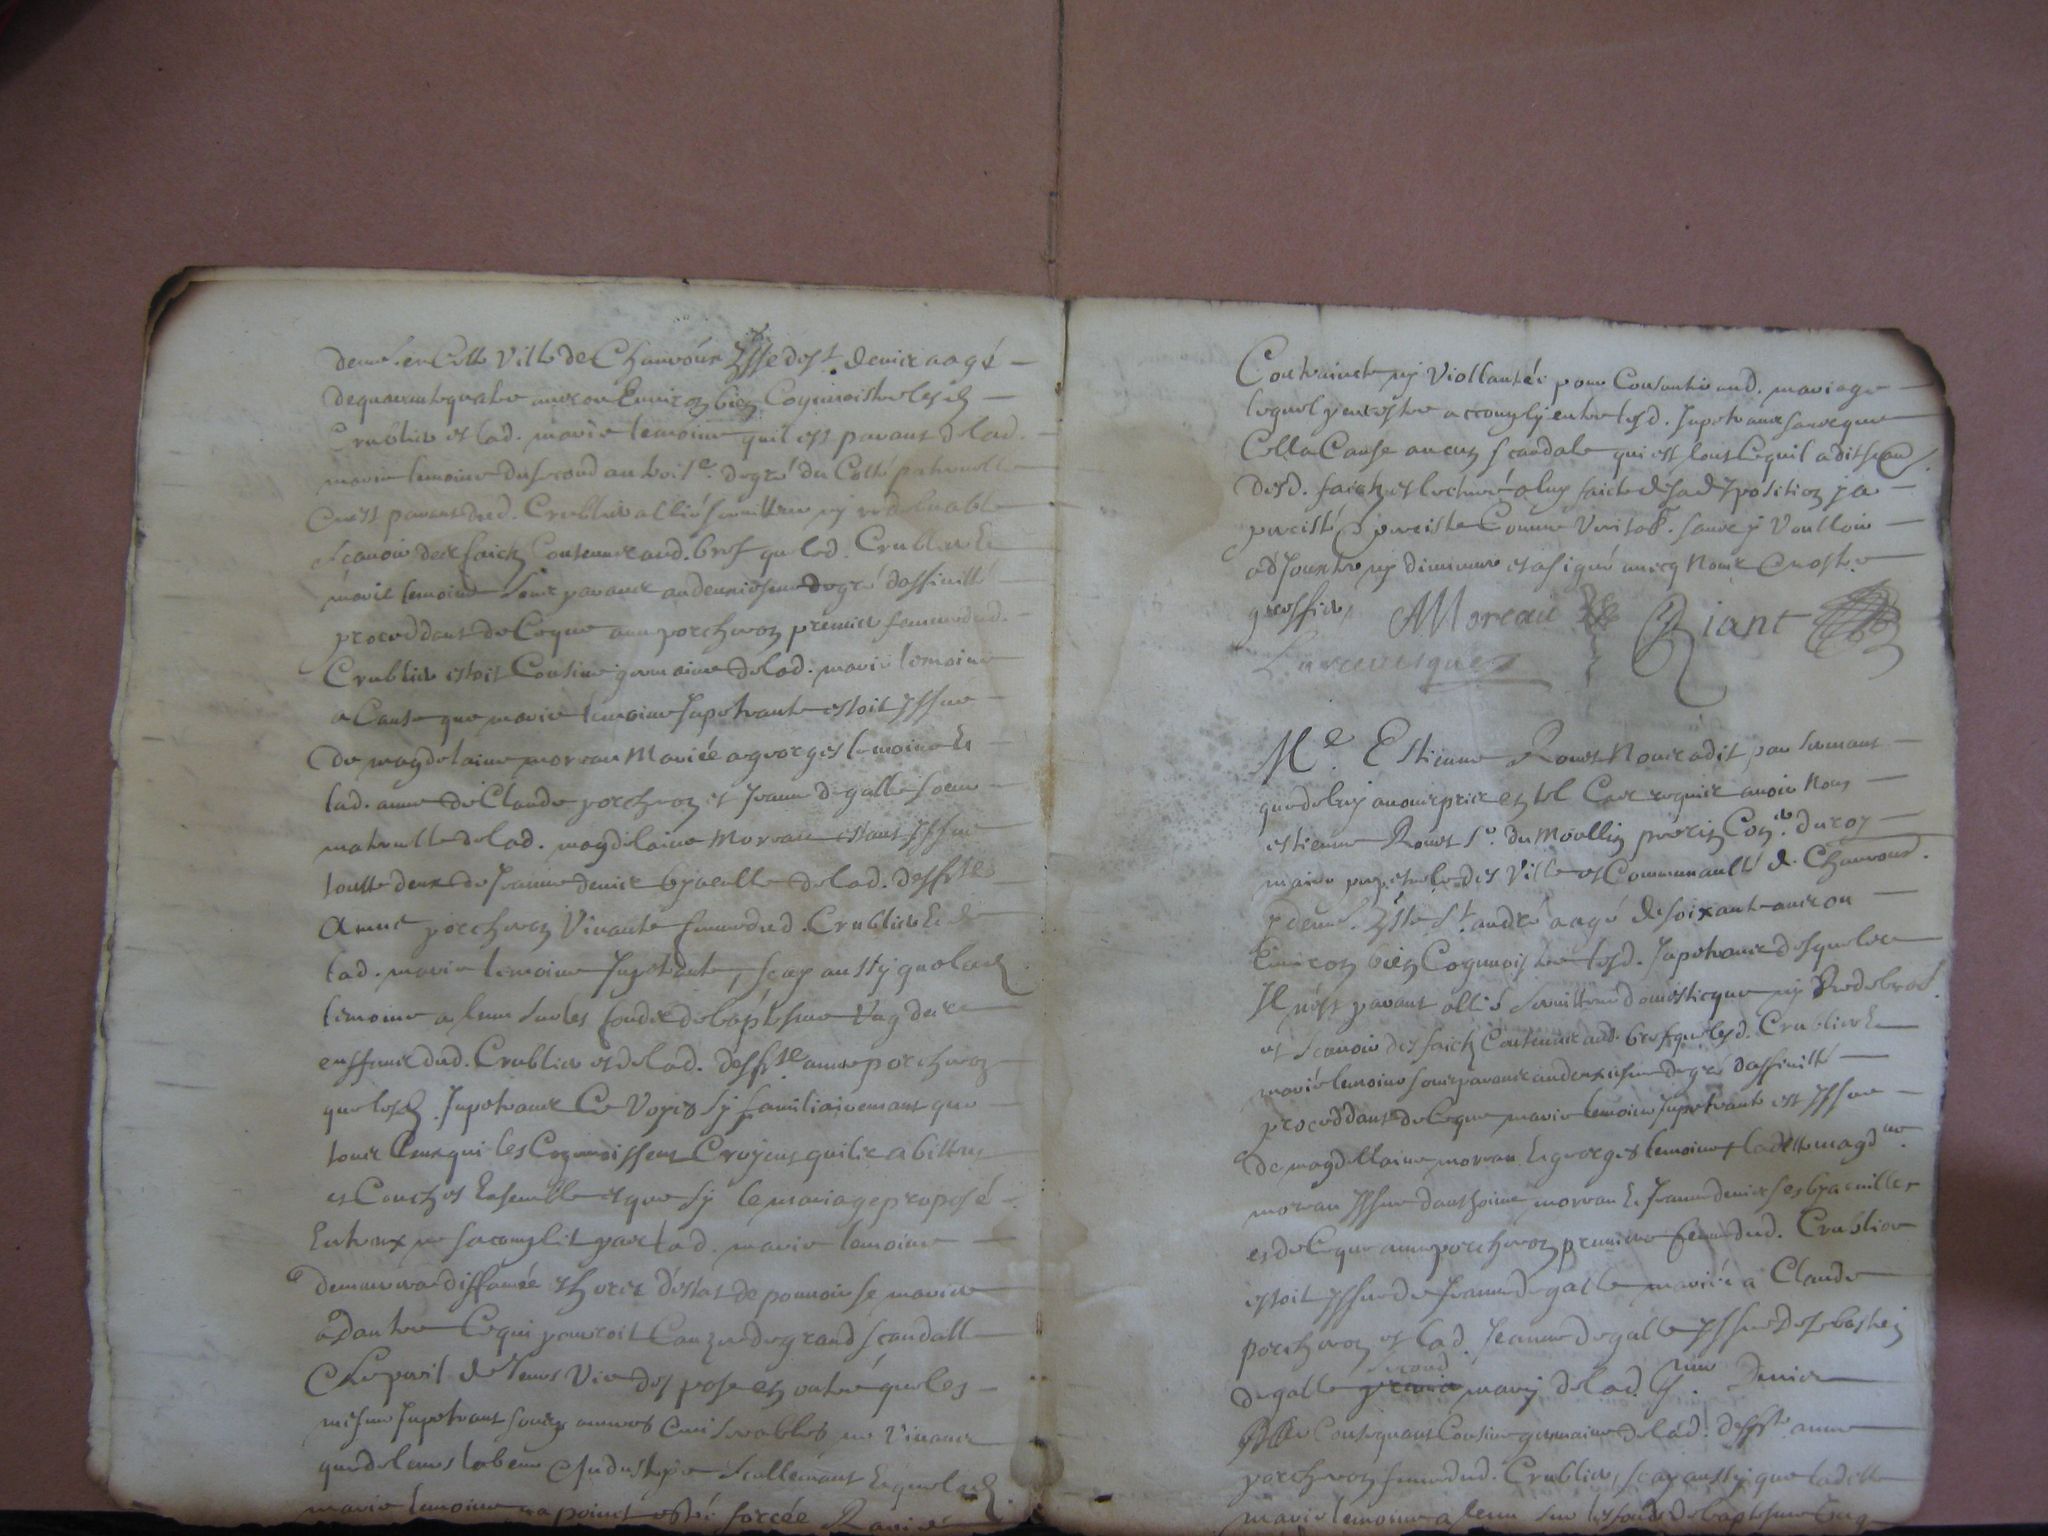 demt. en Cette Ville de Chauvour psse de st. denis aagé
de quarente quatre ans ou Environ bien Cognoistre lesd.
Crublier et lad. marie lemoine quil est parant de lad.
marie lemoine du second au trois e. degré du Costé paternelle
n'est parant dud. Crublier allié serviteur ny redebvable
scavoir des faicts Contenus aud. bref que led. Crublier Et
marie lemoine sont parans au deuxiesme degré daffinitté
proceddant de Ceque anne porcheron premier femme dud.
Crublier estoit Cousine germaine de lad. marie lemoine
a Cause que marie lemoine Inpetrante estoit Issue
de magdelaine moreau Mariée a georges lemoine Et
lad. anne de Claude porcheron et Jeanne degalle soeur
maternelle de lad. magdelaine Moreau estant Issue
toutte deux de Jeanne denis byaeulle de lad. deffte
Anne porcheron Vivante femme dud. Crublier Et de
lad. marie lemoine Inpetrante, scay aussy que lad.
lemoine a tenu sur les fonds de baptesme Ung des
enffans dud. Crublier et de lad. deffte anne porcheron
que lesd. Inpetrans Ce Voyes sy familiairemant que
tous Ceux qui les Cognoissent Croyent quils abittent
et Couches Ensemble et que sy le mariage proposé
Entreux ne sacomplit pas lad. marie lemoine
demeurera diffamée et hors d'estat de pouvoir se marier
a dautre Ce qui pourroit Causer de grand scandalle
Et le peril de leurs Vie despose en outre que les
mesme Inpetrant sont pauvres Et miserables ne Vivans
que de leurs labeur Et Industrye seullemant Et que lad.
marie lemoine na point esté forcée Ravie
Contrainte ny Viollantée pour Consantir aud. mariage
lequel peut estre accomply entre lesd. Inpetrans sans que
Cella Cause aucun scandale qui est tout Ce quil a dit scavoir
desd. faicts et lecture a luy faicte de sa depposition y a
persisté Et persiste Comme Veritab. sans y Voulloir
adjouster ny diminuer et a signé avecq Nous Et nostre
greffier,
Moreau Riant
Larcevesque
Me. Estienne Rouet Nous a dit par sermant
que de luy avons pris en tel Cas requis avoir Nom
estienne Rouet sr. du Moullin Coner. du roy
maire perpetuelle des Ville et Communaulté de Chauvour.
y demt. psse st. andré aagé de soixante ans ou
Environ bien Cognoistre lesd. Inpetrans desquelss
Il nest parant allié serviteur domesticque ny Redebvab.
et scavoir des faicts Contenus aud. bref que lesd. Crublier Et
marie lemoine sont parans au deuxiesme degré daffinitté
proceddant de Ceque marie lemoine Inpetrante est Issue
de magdellaine moreau Et georges lemoine Et ladite magdne.
moreau Issue danthoine moreau Et Jeanne denis ses byaeulles
et de Ceque anne porcheron premiere femme dud. Crublier
estoit Issue de Jeanne degalle mariée a Claude
porcheron et lad. Jeanne degalle Issue de sebastien
degalle premier second mary de lad. Jnne. Denis
Par Consequant Cousine germaine de lad. deffte. anne
porcheron femme dud. Crublier, scay aussy que ladite
marie lemoine a tenu sur les fonds de baptesme Ung